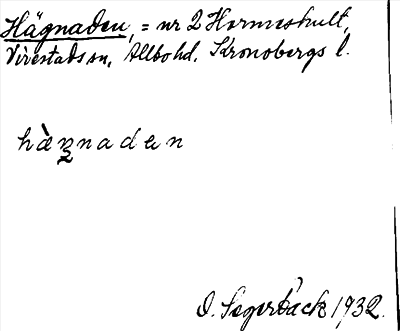 Hägnaden, = nr 2 Hormeshult,
Virestads sn, Allbo hd. Kronobergs l.
hæ̀ŋnadən
D. Segerbäck 1932.